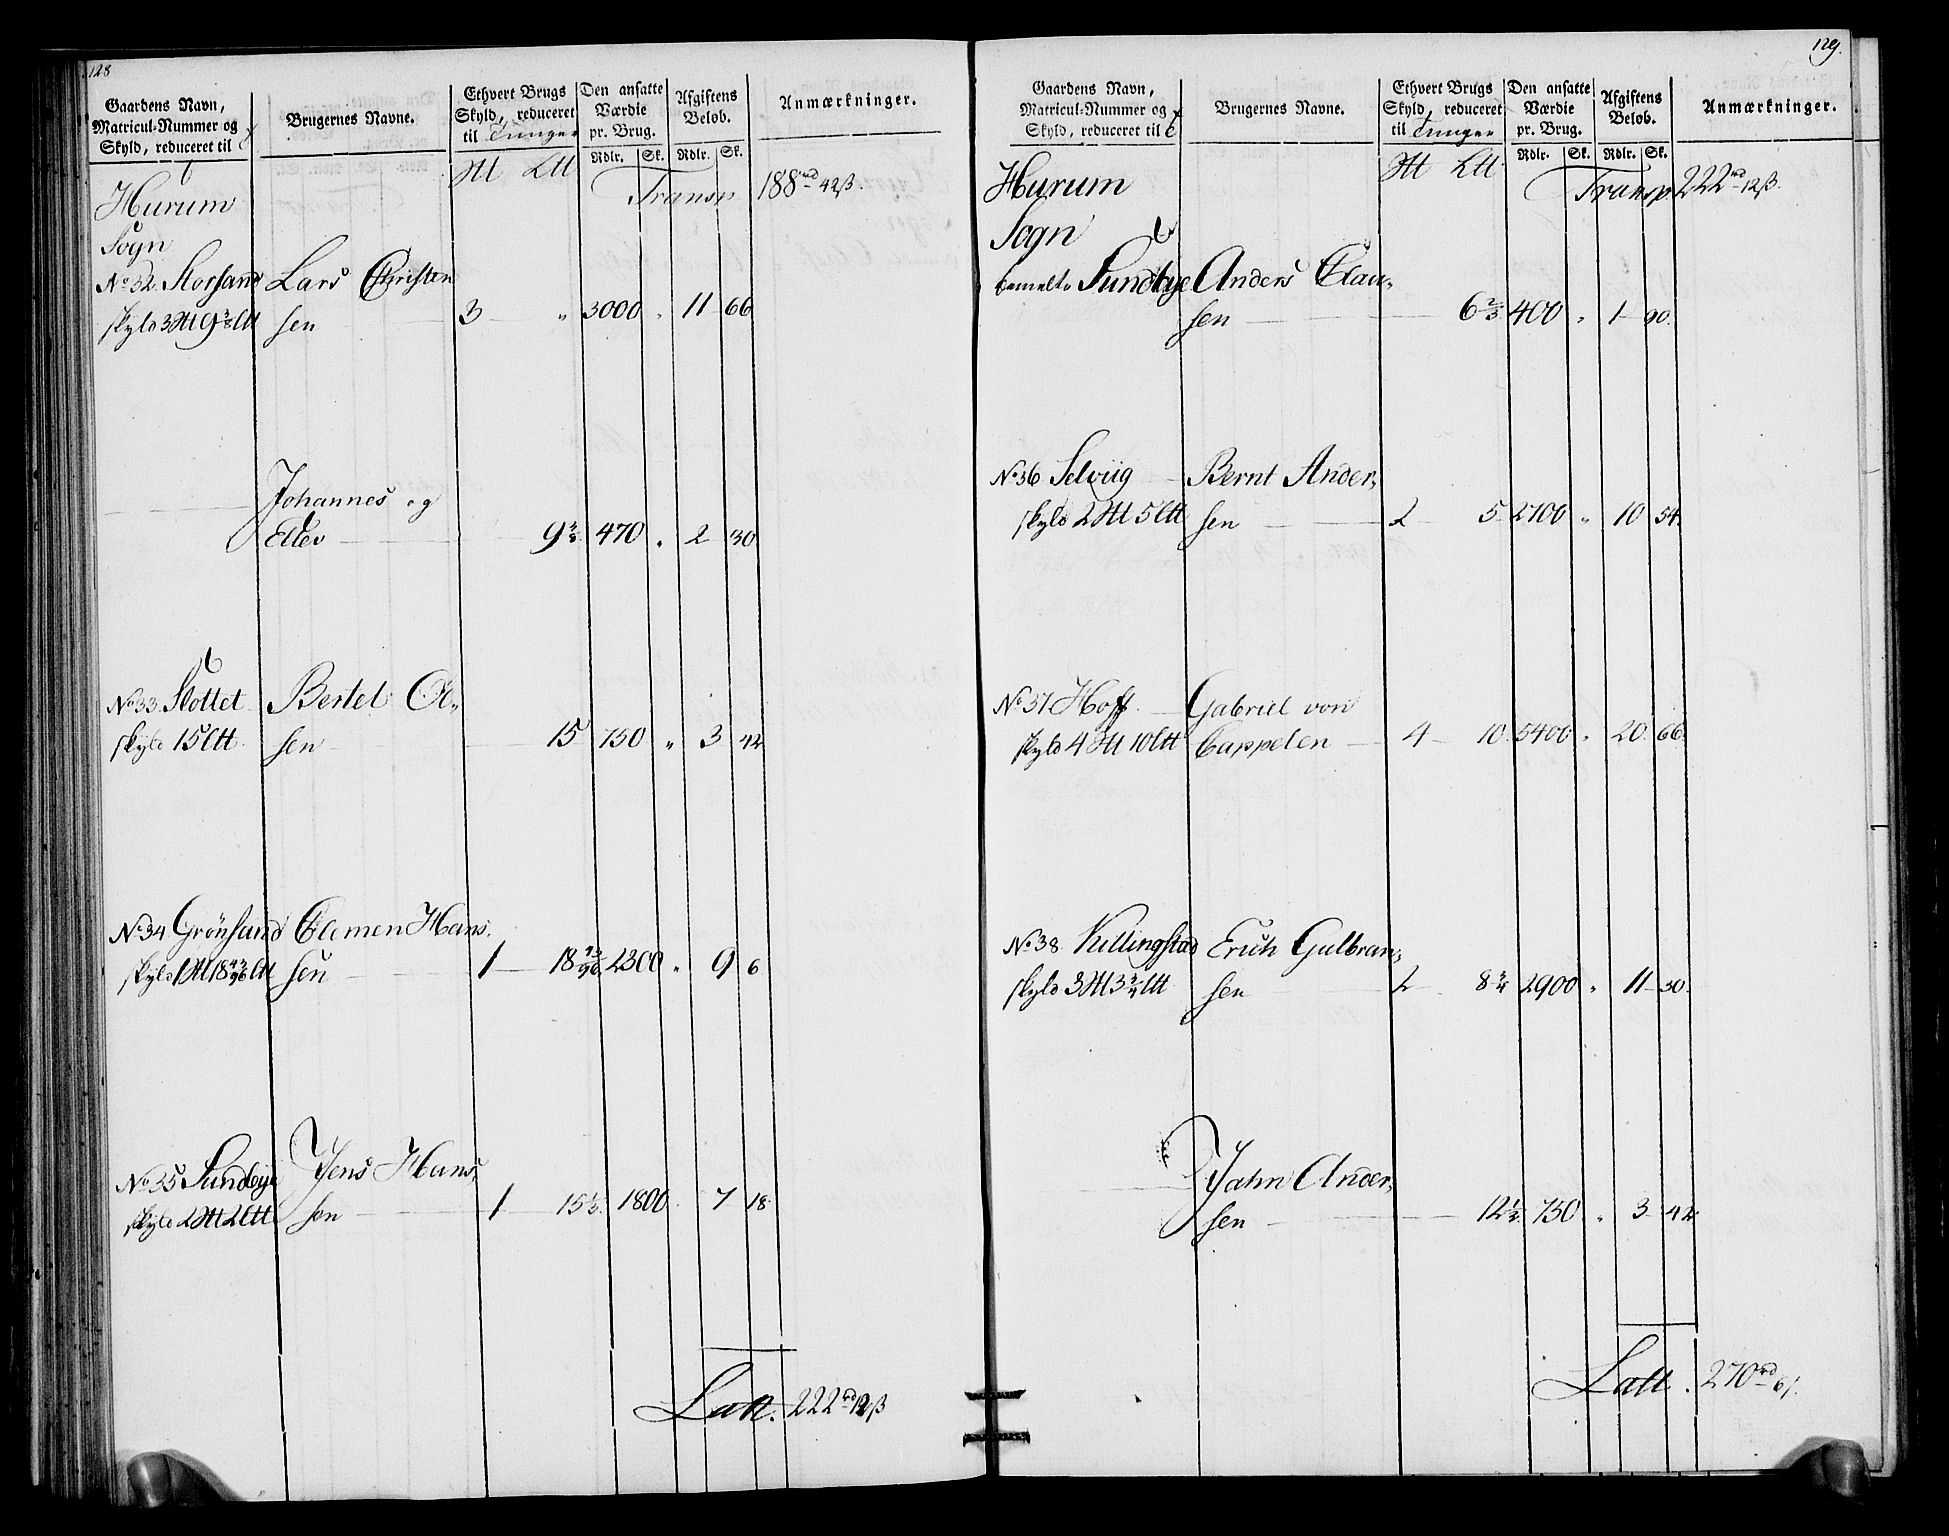 128
Gaardens Navn,
Matricul-Nummer og
Skyld, reduceret til
Brugernes Navne.
Ethvert Brugs
Skyld, reduceret
til Tunger
Den ansatte
Værdie
pr. Brug.
Rdlr. Sk.
Afgiftens
Beløb.
Rdlr. Sk.
Anmærkninger.
Hurum
Sogn
Transp 188 rd 42 ß.
No 32. Storsand Lars Christen
skyld 3 9 3/8 sen 3 " 3000 " 11 66
Johannes og
Ellev 9 2/3 470 " 2 30
No 33. Slottet Bertel Ol,,
skyld 15 sen 15 750 " 3 42
No 34 Grönsand Clemen Hans,
skyld 1 18 43/96 sen 1 18 43/96 2300 " 9 6
No 35 Sundbye Jens Hans,
skyld 2 2 sen 1 15 1/3 1800 7 18
Latt. 222 rd 12 ß
129.
Gaardens Navn,
Matricul-Nummer og
Skyld, reduceret til
Brugernes Navne.
Ethvert Brugs
Skyld, reduceret
til Tunger
Den ansatte
Værdie
pr. Brug.
Rdlr. Sk.
Afgiftens
Beløb.
Rdlr. Sk.
Anmærkninger.
Hurum
Sogn
Transp 222 rd 12 ß.
bemelte Sundbye Anders Clau,,
sen 6 2/3 400 " 1 90.
No 36 Selviig Bernt Ander,,
skyld 2 5 sen 2 5 2700 " 10 54
No 37 Hoff Gabriel von
skyld 4 10 Cappelen 4 10 5400 " 20 66
No 38 Killingstad Erich Gulbran,,
skyld 3 3/4 sen 2 8 3/4 2900 " 11 30
Jahn Ander,,
sen 12 1/2 750 " 3 42
Latt. 270 rd 6 ß.